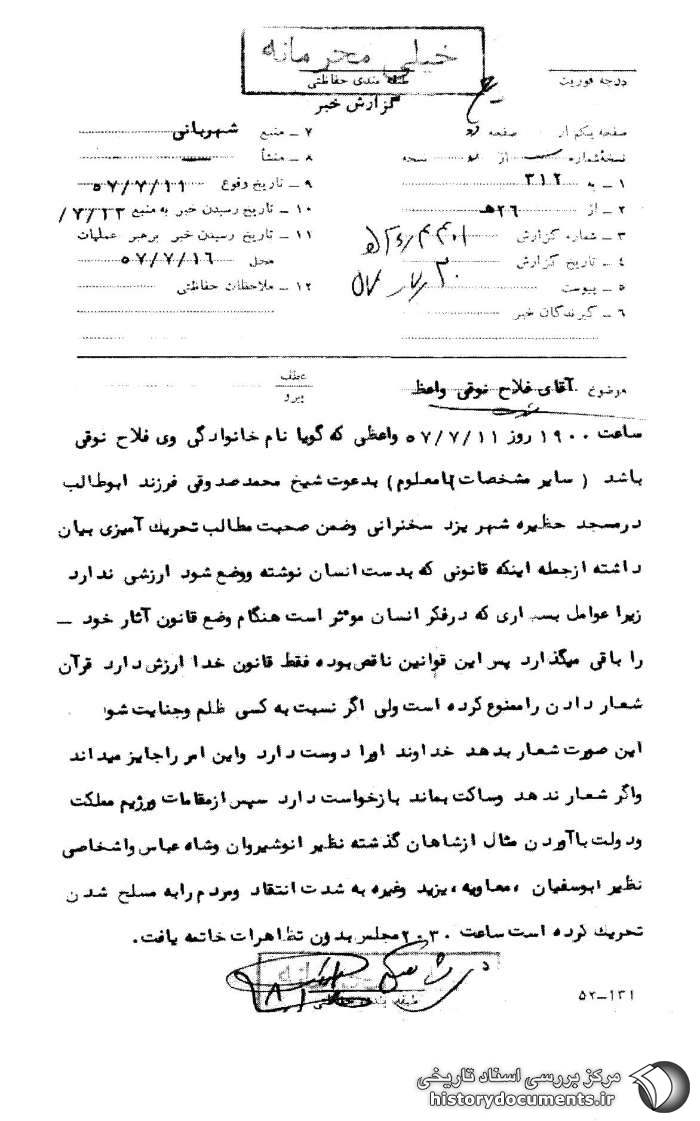 خیلی محرمانه
طبقه بندی حفاظتی
درجه فوریت
گزارش خبر
صفحه یکم از صفحه
نسخه شماره از نسخه
۱ ـ به ۳۱۲
۲ ـ از ۲۶هـ
۳ ـ شماره گزارش
۴ ـ تاریخ گزارش
۵ ـ پیوست
۶ ـ گیرندگان خبر
۷ ـ منبع شهربانی
۸ ـ منشأ
۹ ـ تاریخ وقوع ۵۷/۷/۱۱
۱۰ ـ تاریخ رسیدن خبر به منبع
۱۱ ـ تاریخ رسیدن خبر برهبر عملیات
محل ۵۷/۷/۱۶
۱۲ ـ ملاحظات حفاظتی
موضوع آقای فلاح نوقی واعظ
عطف
پیرو
ساعت ۱۹۰۰ روز ۵۷/۷/۱۱ واعظی که گویا نام خانوادگی وی فلاح نوقی
باشد (سایر مشخصات نامعلوم) بدعوت شیخ محمد صدوقی فرزند ابوطالب
درمسجد حظیره شهر یزد سخنرانی وضمن صحبت مطالب تحریک آمیزی بیان
داشته ازجمله اینکه قانونی که بدست انسان نوشته ووضع شود ارزشی ندارد
زیرا عوامل بسیاری که درفکر انسان موثر است هنگام وضع قانون آثار خود ـ
را باقی میگذارد پس این قوانین ناقص بوده فقط قانون خدا ارزش دارد قرآن
شعار دادن راممنوع کرده است ولی اگر نسبت به کسی ظلم وجنایت شود
این صورت شعار بدهد خداوند اورا دوست دارد واین امر راجایز میداند
واگر شعار ندهد وساکت بماند بازخواست دارد سپس ازمقامات ورژیم مملکت
ودولت باآوردن مثال ازشاهان گذشته نظیر انوشیروان وشاه عباس واشخاصی
نظیر ابوسفیان ، معاویه ، یزید وغیره به شدت انتقاد ومردم رابه مسلح شدن
تحریک کرده است ساعت ۲۰۳۰ مجلس بدون تظاهرات خاتمه یافت.
خیلی محرمانه
طبقه بندی حفاظتی
۵۲ـ۱۳۱
مرکز بررسی اسناد تاریخی
historydocuments.ir